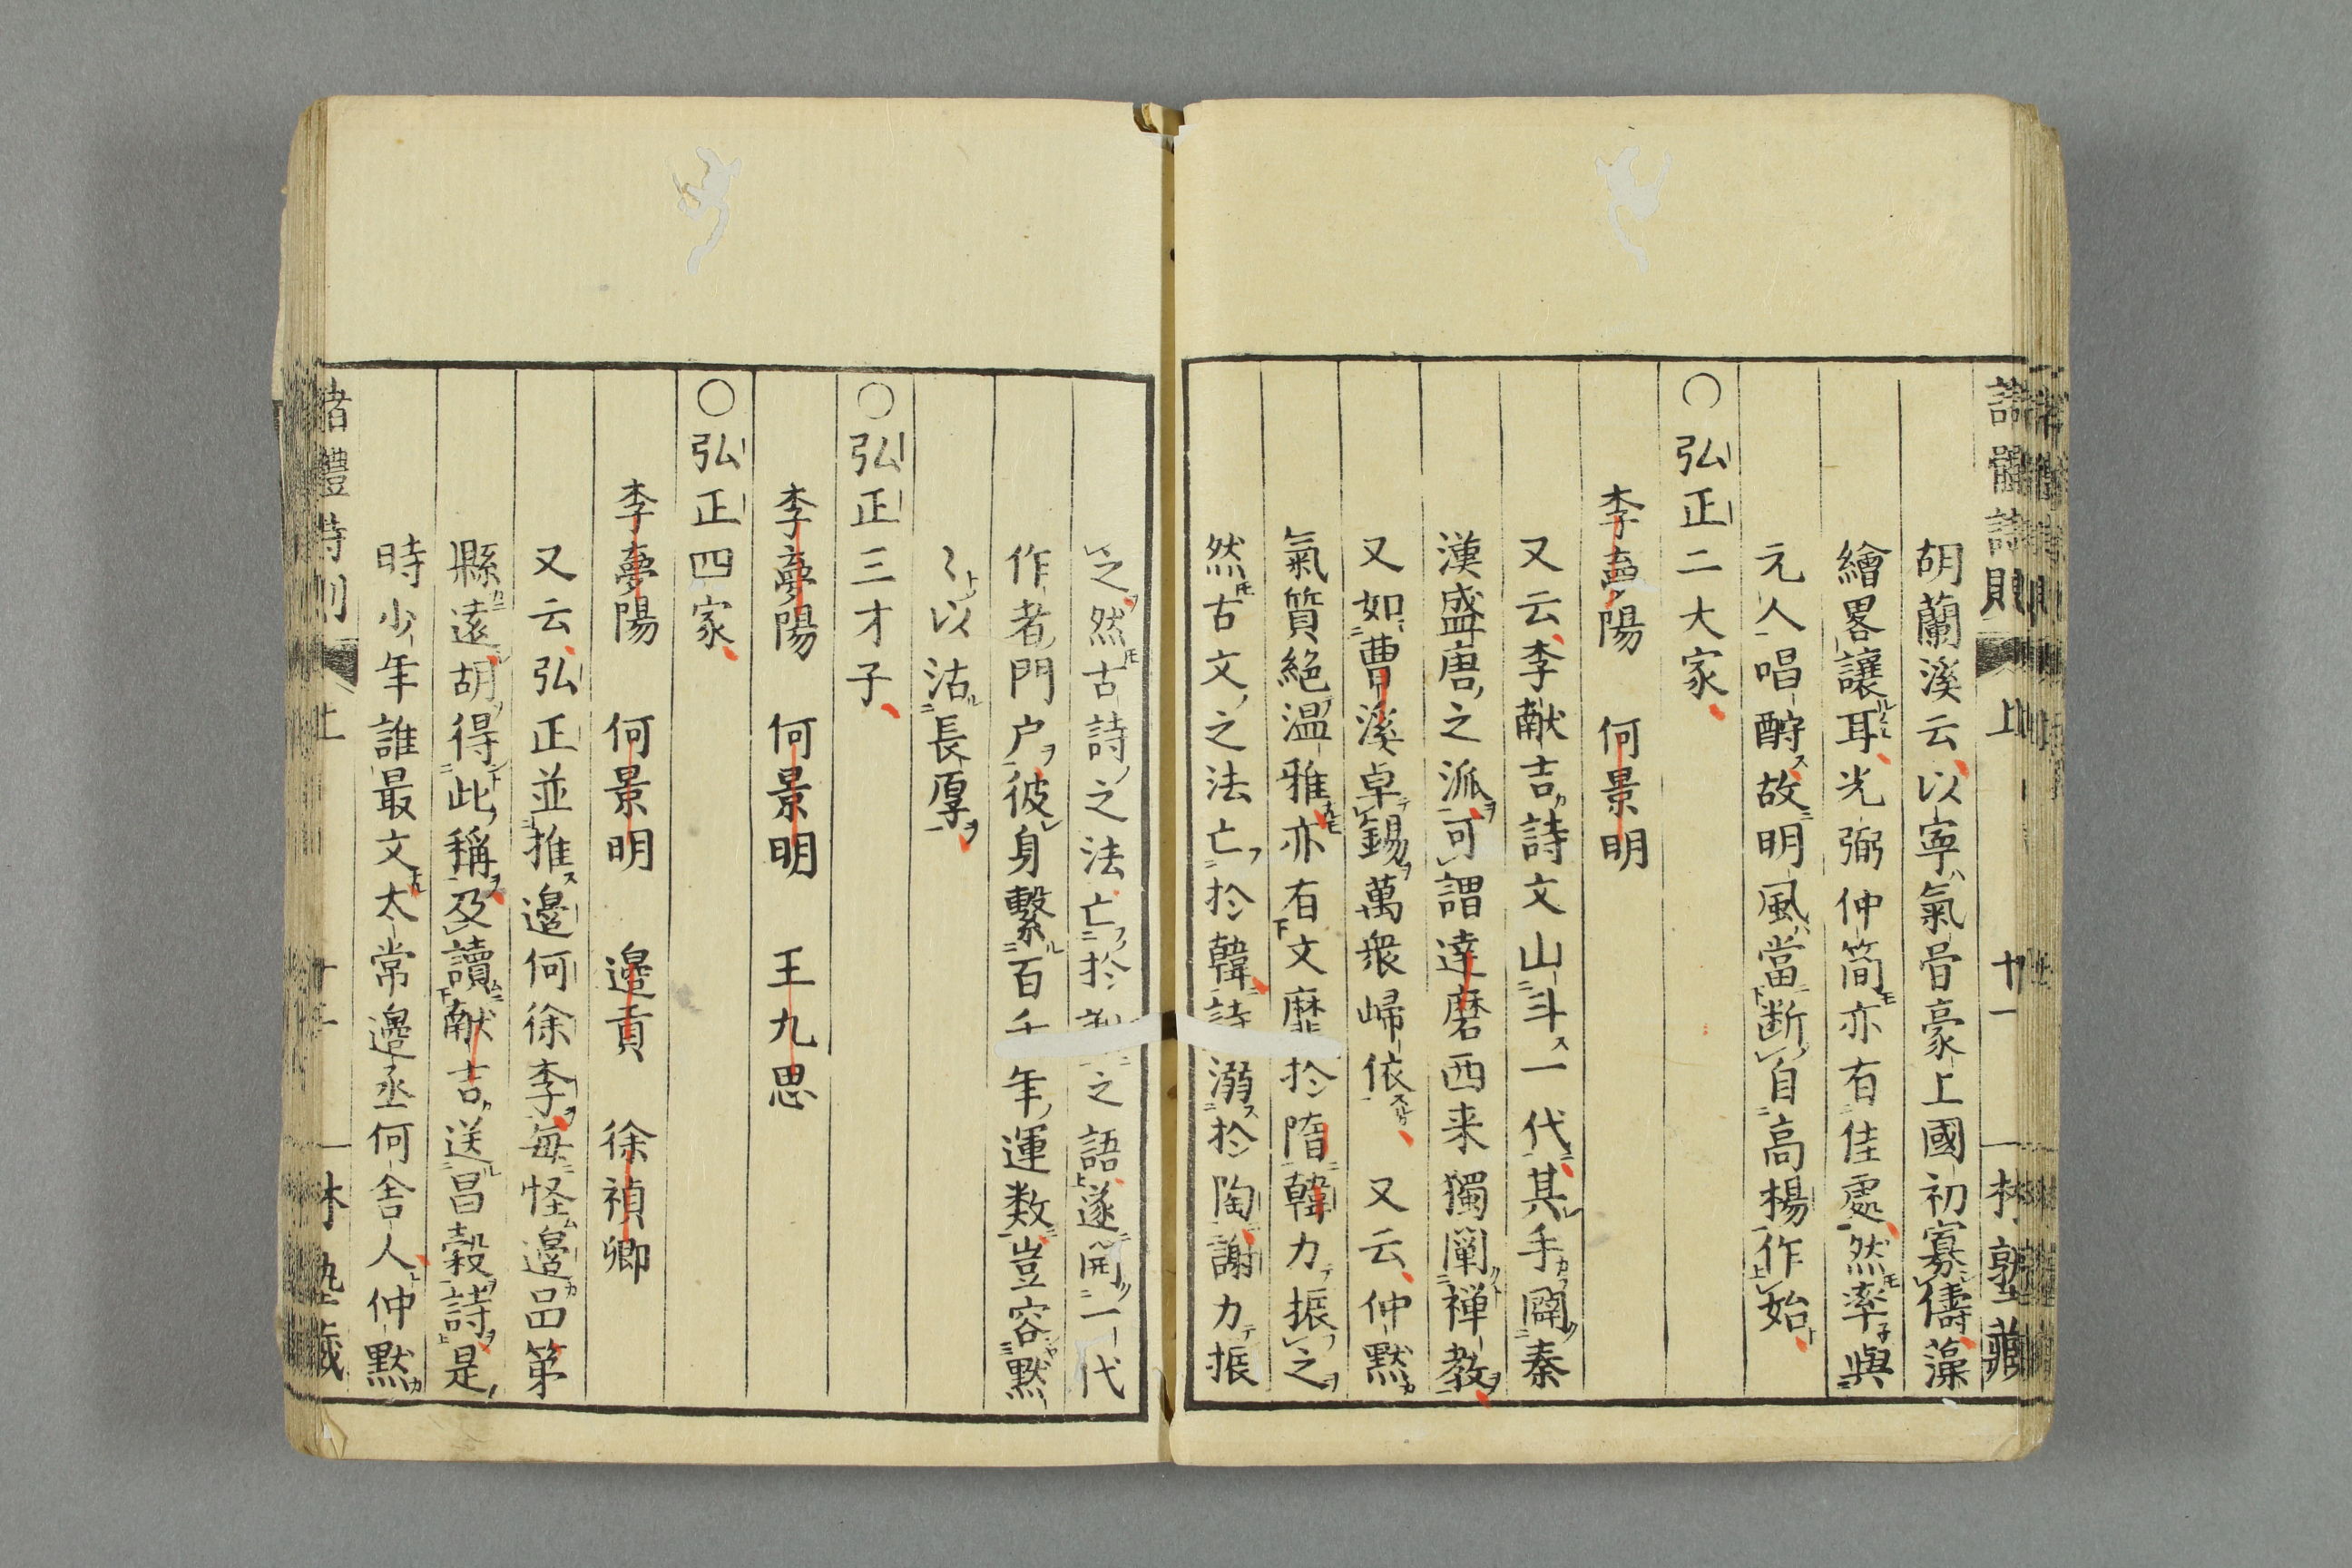 諸體詩則 上 廿一 林塾藏
胡蘭溪云以寧氣骨豪上國初寡儔藻
繪畧讓耳光弼仲簡亦有佳處然率與
元人唱酧故明風當断自高楊作始
○弘正二大家
李夢陽 何景明
又云李献吉詩文山斗一代其手闢秦
漢盛唐之派可謂達磨西来獨闡禅教
又如曹溪卓錫萬衆歸依 又云仲默
氣質絕温雅亦有文靡於隋韓力振之
然古文之法亡於韓詩溺於陶謝力振
之然古詩之法亡於 之語遂開一代
作者門户彼身繫百千年運数豈容黙
〻以沽長厚
○弘正三才子
李夢陽 何景明 王九思
○弘正四家
李夢陽 何景明 邉貢 徐禎卿
又云弘正並推邉何徐李每怪邉品第
縣遠胡得此稱及讀献吉送昌穀詩是
時少年誰最文太常邉丞何舍人仲默
諸體詩則 上 林塾藏